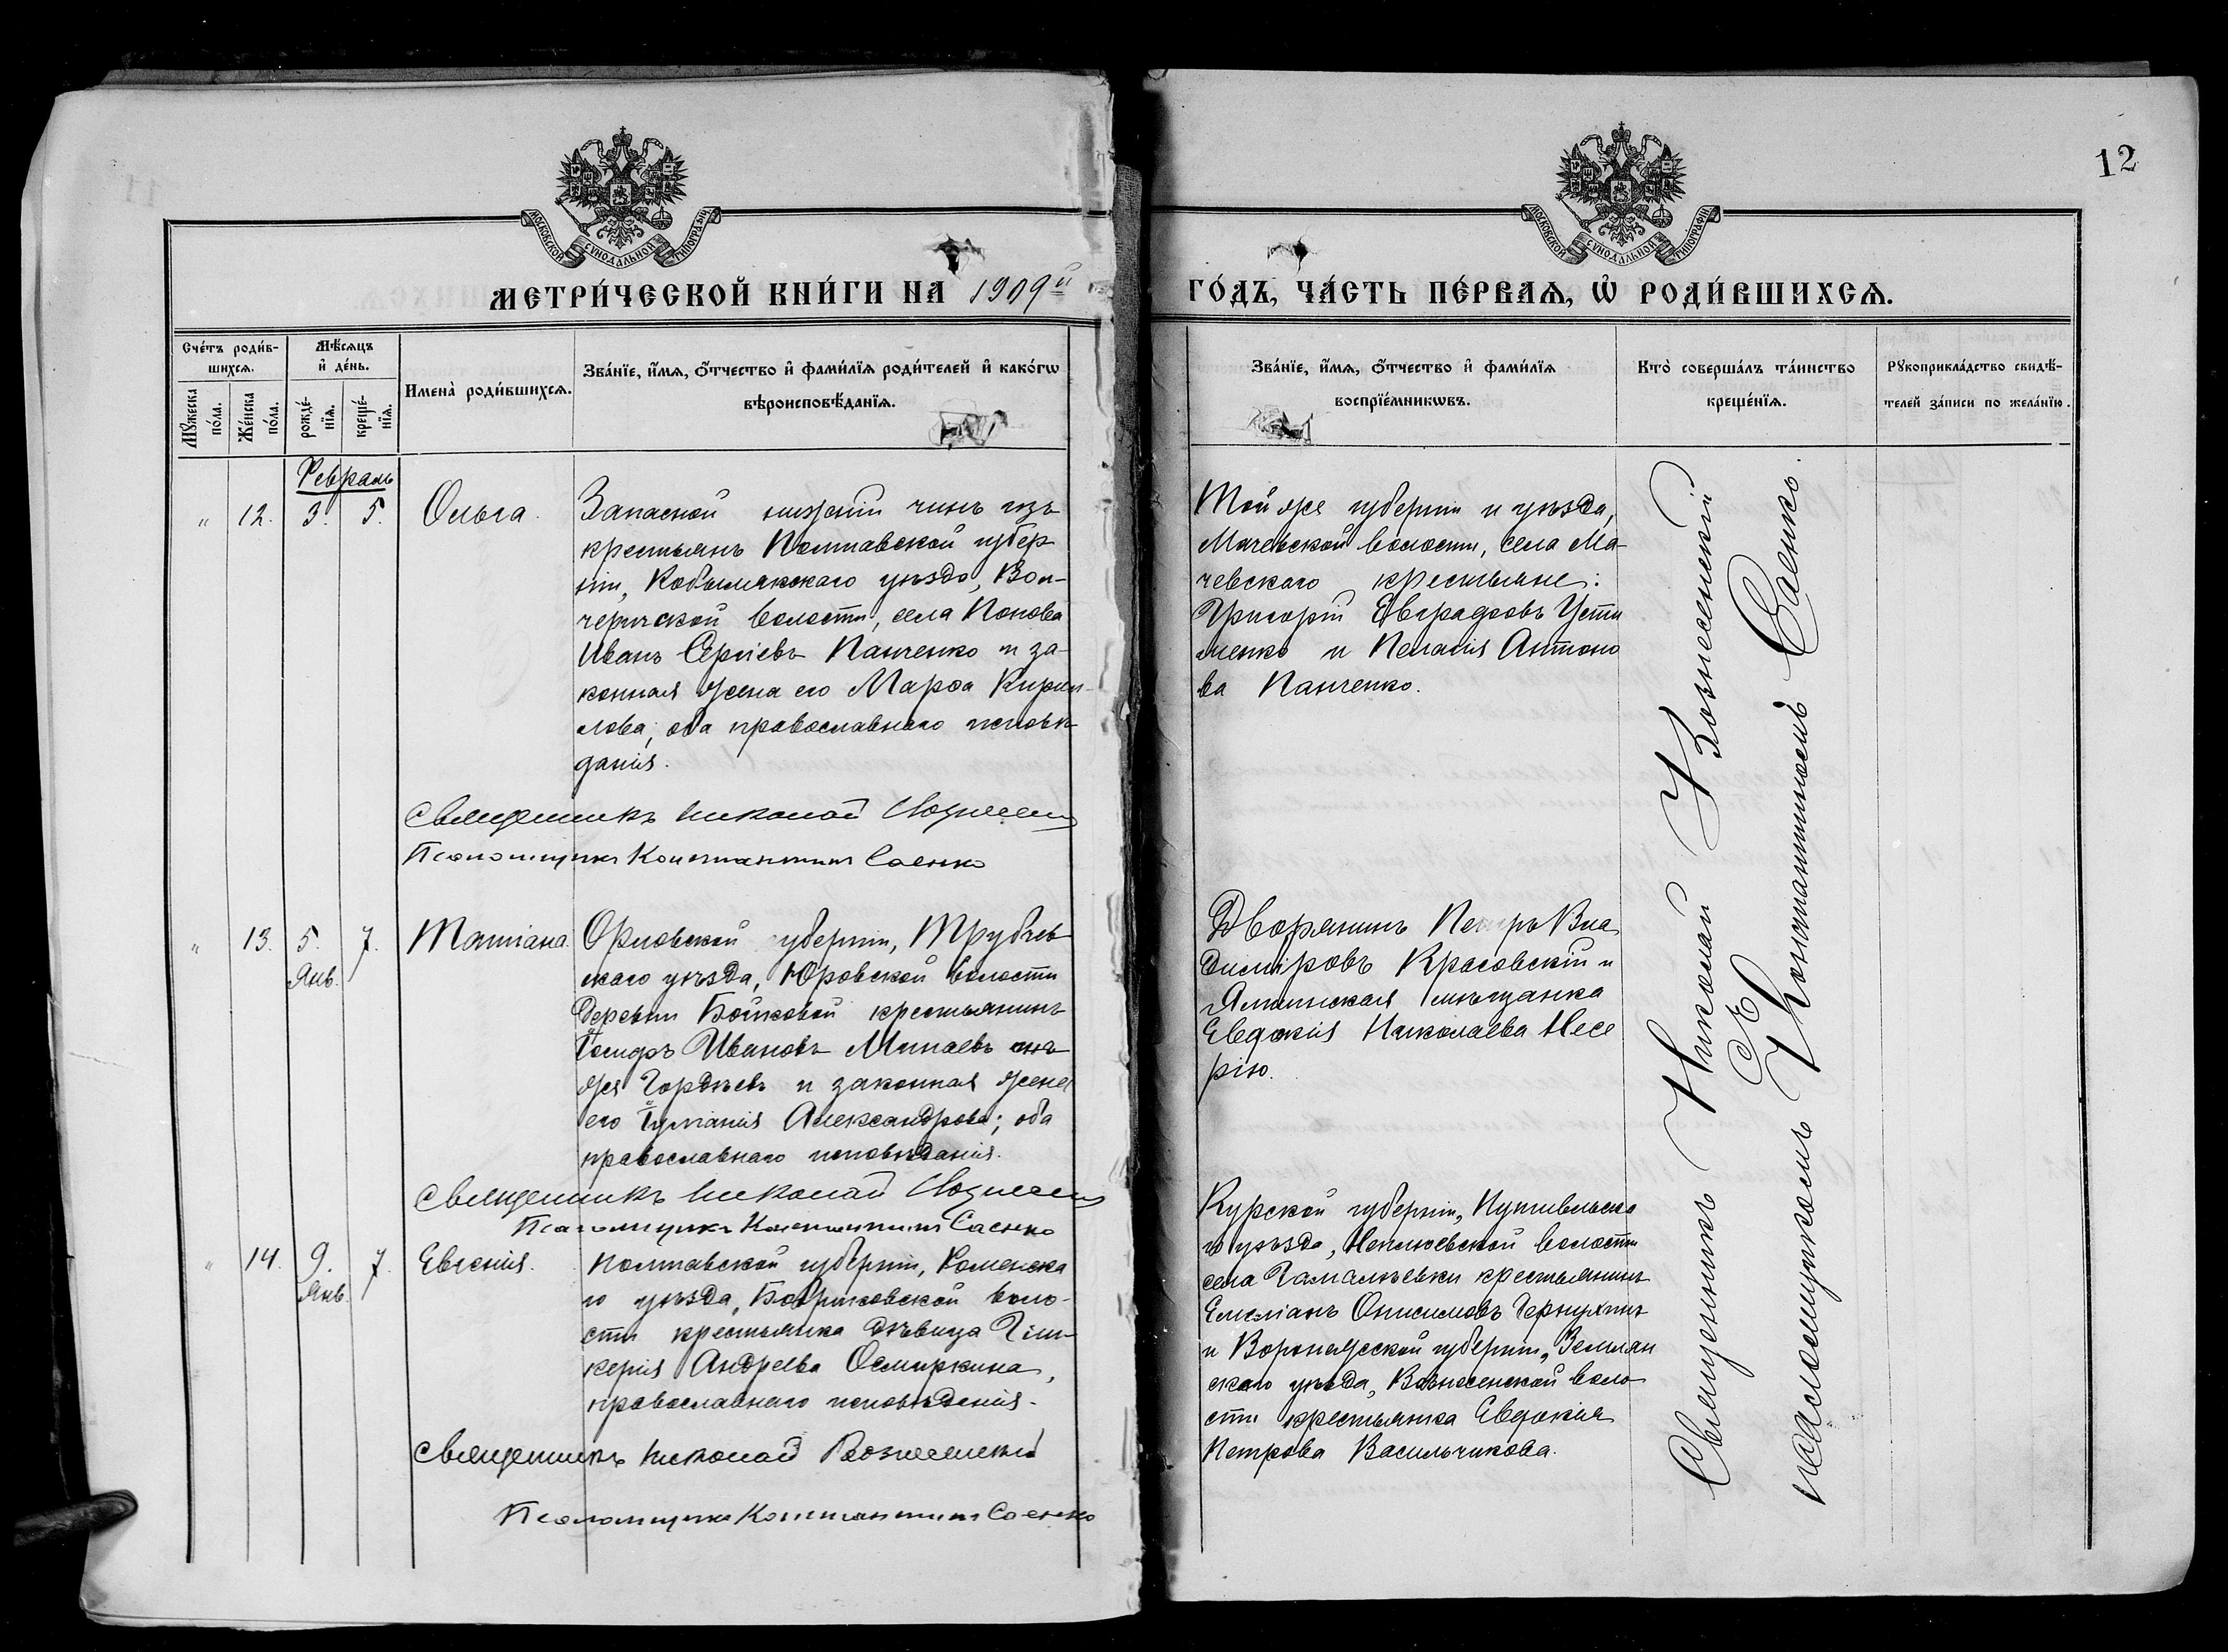 12
МОСКОВСКОЙ СѴНОДАЛЬНОЙ ТИПОГРАФІИ
МОСКОВСКОЙ СѴНОДАЛЬНОЙ ТИПОГРАФІИ
МЕТРИ́ЧЕСКОЙ КНИ́ГИ НА 1909й
ГО́ДЪ, ЧА́СТЬ ПЕ́РВАѦ, Ѡ РОДИ́ВШИХСѦ.
Сче́тъ роди́в-
шихсѧ.
Мꙋ́жеска по́ла.
Же́нска по́ла.
Мѣ́сѧцъ
и҆ де́нь.
рожде́-нїѧ.
креще́-нїѧ.
Имена̀ роди́вшихсѧ.
Зва́нїе, и҆́мѧ, ѻ҆́тчество и҆ фами́лїѧ роди́телей и҆ како́гѡ
вѣроисповѣ́данїѧ.
Зва́нїе, и҆́мѧ, ѻ҆́тчество и҆ фами́лїѧ
воспрїе́мникѡвъ.
Кто̀ соверша́лъ та́инство
креще́нїѧ.
Рꙋкоприкла́дство свидѣ́-
телей за́писи по жела́нїю.
Февраль
" 12. 3. 5. Ольга.
Запасной нижній чинъ изъ
крестьянъ Полтавской губер
ніи, Кобылякскаго уѣзда,
волости, села
Иванъ Сергіевъ Панченко и за-
конная жена его Марѳа Кирил-
лова, оба православнаго исповѣ
данія.
Священникъ Николай
Псаломщикъ Константинъ Саенко
Той же губерніи и уѣзда,
Мачевской волости, села Ма-
чевскаго крестьяне:
Григорій Евграфовъ Усти
менко и Пелагія Антоно
ва Панченко.
" 13. 5. Янв. 7. Татіана.
Орловской губерніи, Трубчев
скаго уѣзда, Юровской волости
деревни крестьянинъ
Іосифъ Ивановъ Минаевъ онъ
же Гордѣевъ и законная жена
его Іуліанія Александрова; оба
православнаго исповѣданія.
Священникъ Николай
Псаломщикъ Константинъ Саенко
Дворянинъ Петръ Вла
диміровъ Красовскій и
Ялтинская мѣщанка
Евдокія Николаева Несе
рію.
" 14. 9. Янв. 7. Евгенія.
Полтавской губерніи, Роменска
го уѣзда, Бобриковской воло-
сти крестьянка дѣвица Гли-
керія Андреева Осмиркина,
православнаго исповѣданія.
Священникъ Николай Вознесенскій
Псаломщикъ Константинъ Саенко
Курской губерніи, Путивльска
го уѣзда, Неплюевской волости
села Гамалѣевки крестьянинъ
Емеліанъ Онисимовъ
и Воронежской губерніи, Землян
скаго уѣзда, Вознесенской воло
сти крестьянка Евдокія
Петрова Васильчикова.
Священникъ Николай Вознесенскій
съ
псаломщикомъ Константиномъ Саенко.